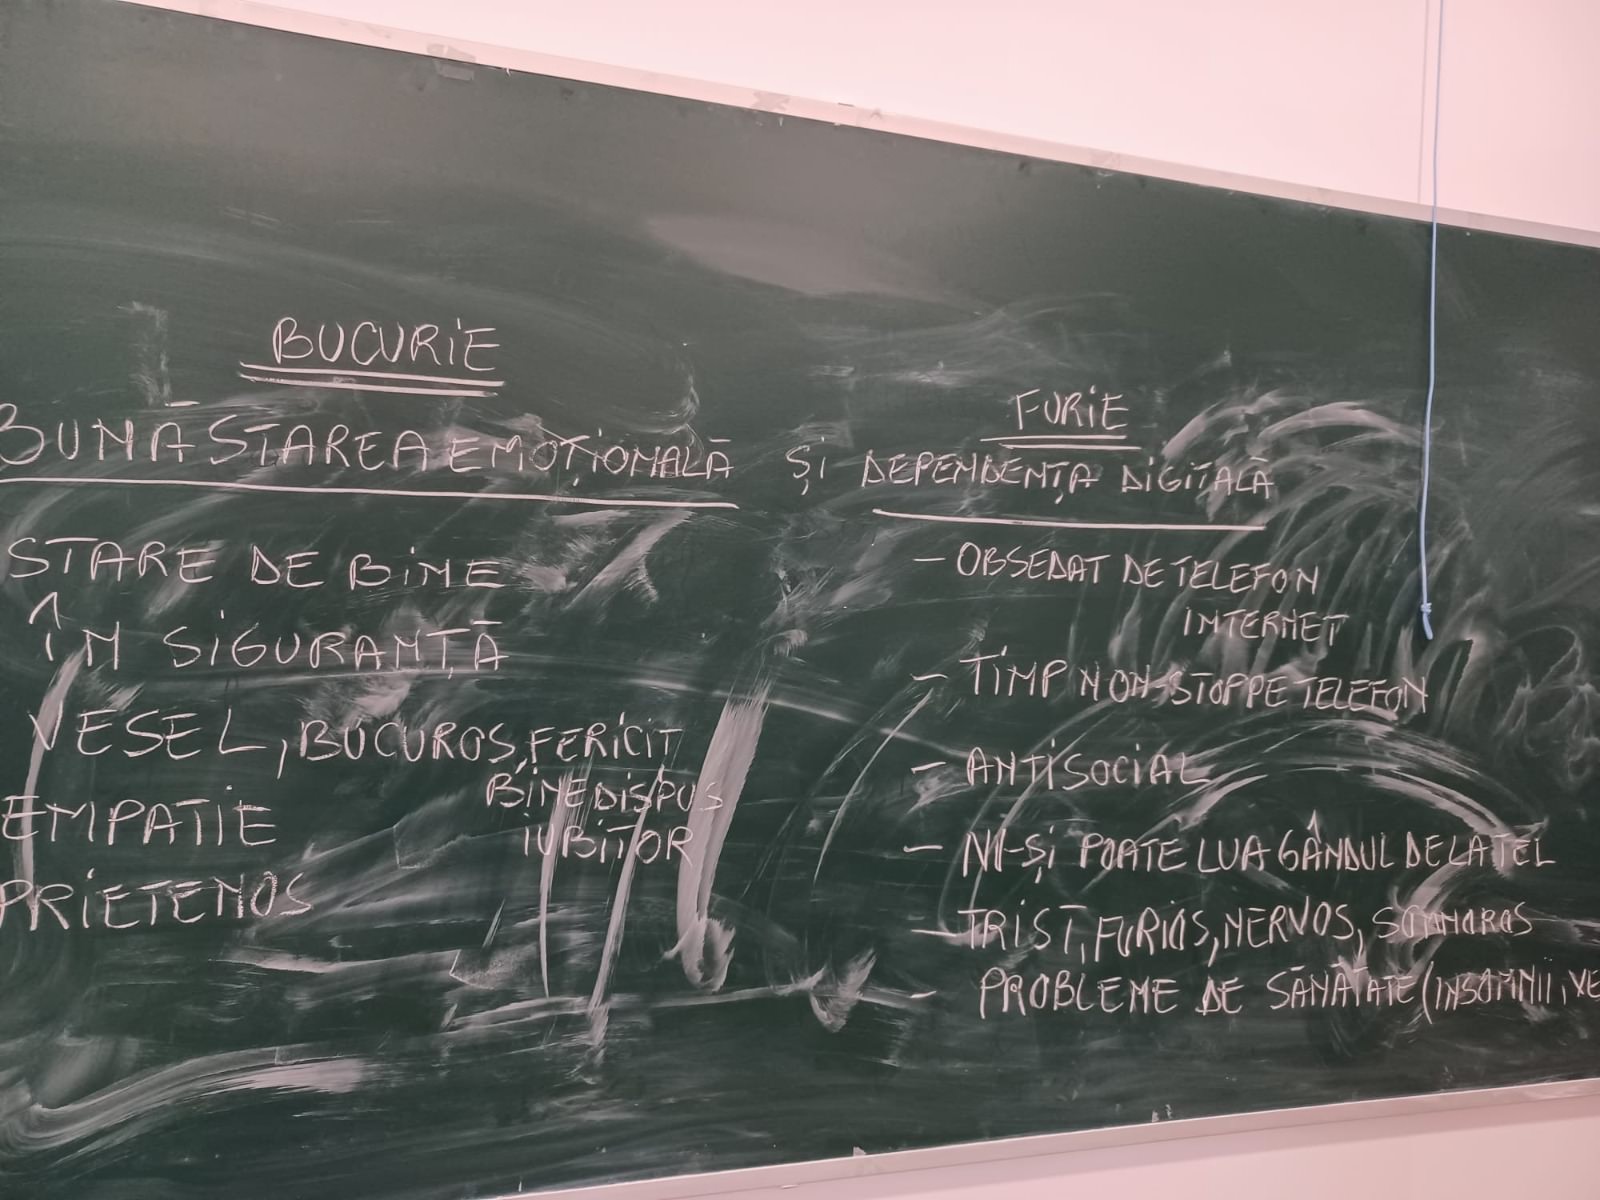 BUCURIE
BUNĂSTAREA EMOȚIONALĂ
STARE DE BINE
ÎN SIGURANȚĂ
VESEL, BUCUROS, FERICIT
BINE DISPUS
IUBITOR
EMPATIE
PRIETENOS
FURIE
ȘI DEPENDENȚA DIGITALĂ
- OBSEDAT DE TELEFON
INTERNET
- TIMP NON-STOP PE TELEFON
- ANTISOCIAL
- NU-ȘI POATE LUA GÂNDUL DE LA TEL
- TRIST, FURIOS, NERVOS, SOMNOROS
- PROBLEME DE SĂNĂTATE (INSOMNII, VE